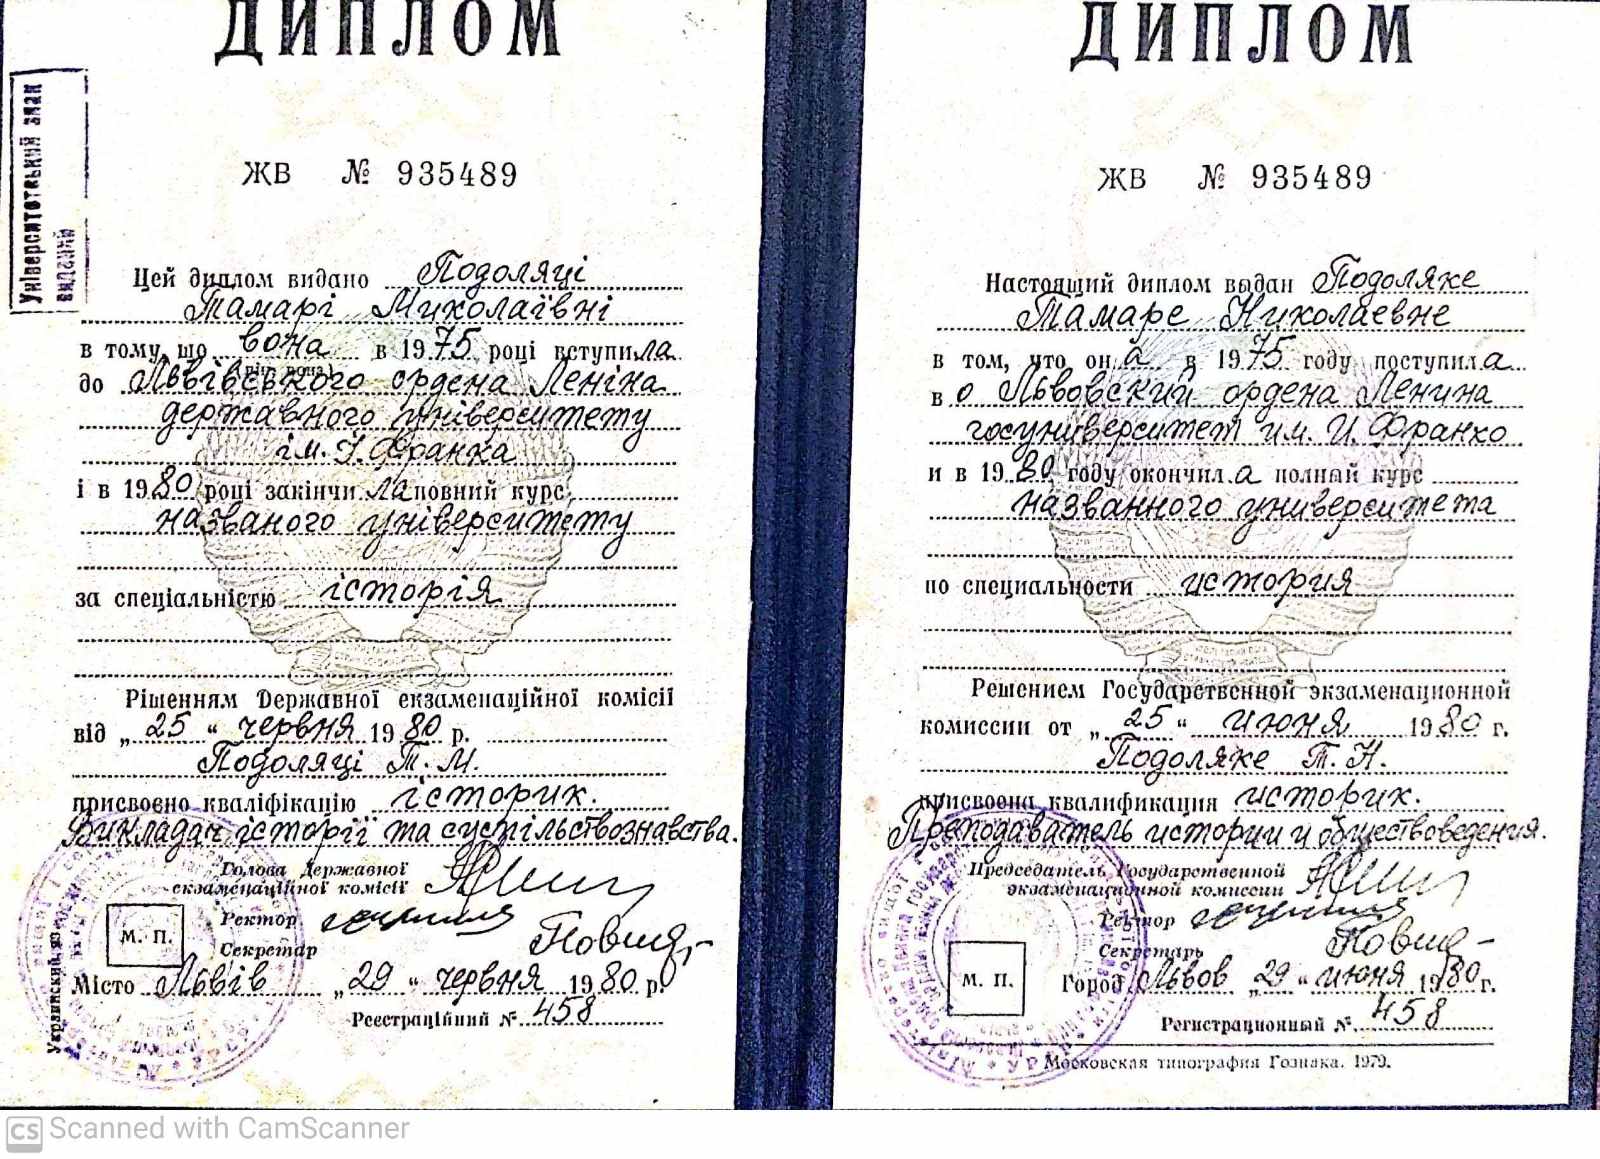 ДИПЛОМ
Університетський знак
виданий
ЖВ № 935489
Цей диплом видано Подоляці
Тамарі Миколаївні
в тому, що вона в 1975 році вступила
(він, вона)
до Львівського ордена Леніна
державного університету
ім. І. Франка
і в 1980 році закінчила повний курс
названого університету
за спеціальністю історія
Рішенням Державної екзаменаційної комісії
від „25“ червня 1980 р.
Подоляці Т. М.
присвоєно кваліфікацію історик.
Викладач історії та суспільствознавства.
Голова Державної
екзаменаційної комісії
Ректор
Секретар
М. П.
Місто Львів „29“ червня 1980 р.
Реєстраційний № 458
Украинский
ДИПЛОМ
ЖВ № 935489
Настоящий диплом выдан Подоляке
Тамаре Николаевне
в том, что она в 1975 году поступила
во Львовский ордена Ленина
госуниверситет им. И. Франко
и в 1980 году окончила полный курс
названного университета
по специальности история
Решением Государственной экзаменационной
комиссии от „25“ июня 1980 г.
Подоляке Т. Н.
присвоена квалификация историк.
Преподаватель истории и обществоведения.
Председатель Государственной
экзаменационной комиссии
Ректор
Секретарь
М. П.
Город Львов „29“ июня 1980 г.
Регистрационный № 458
Московская типография Гознака. 1979.
CS Scanned with CamScanner